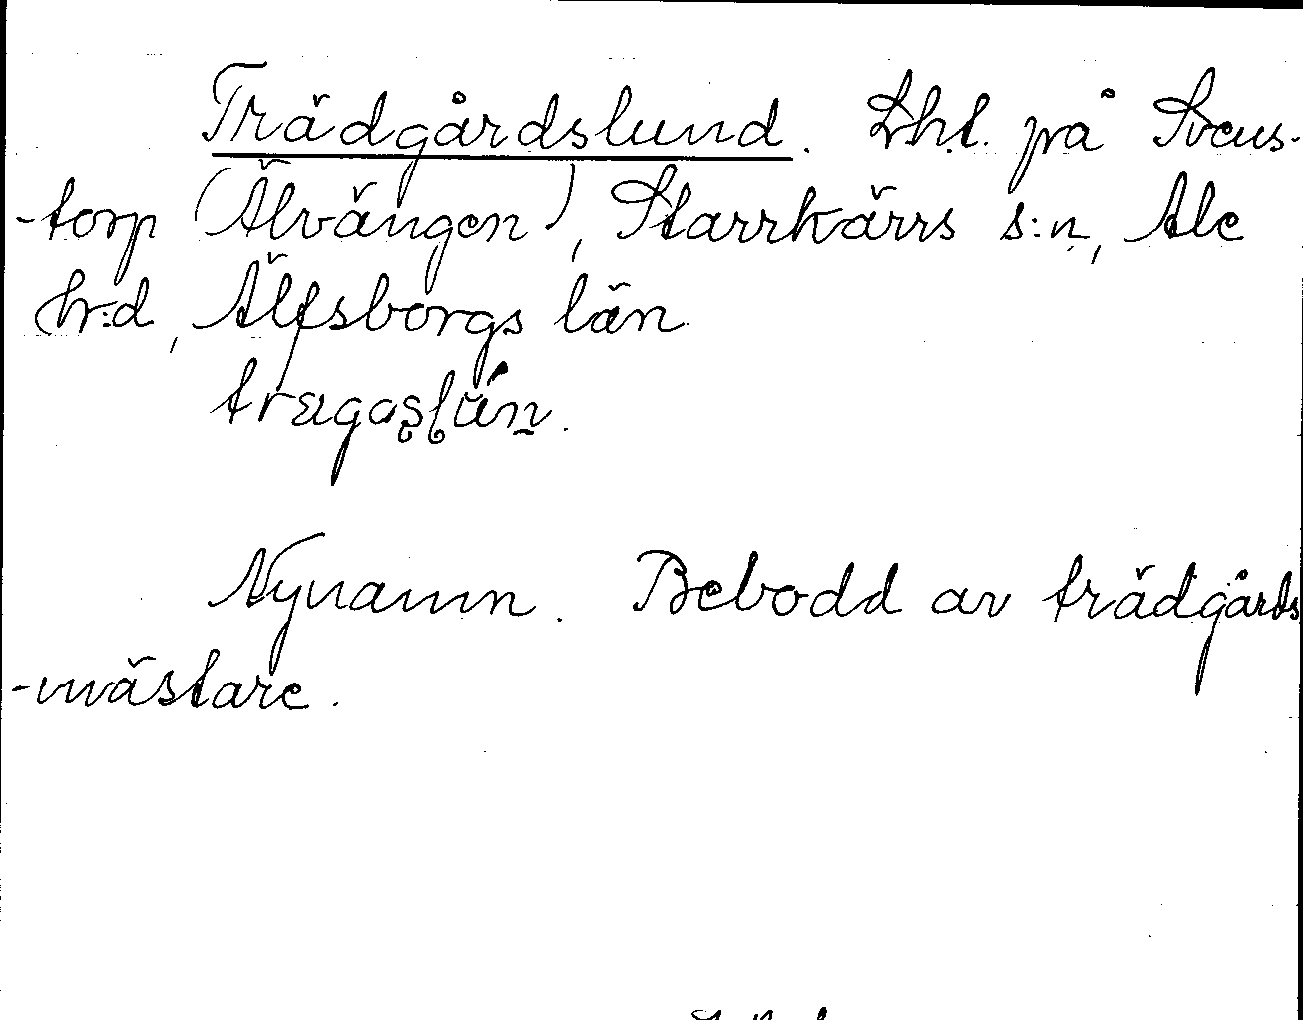 Trädgårdslund. Lht. på Svens-
-torp (Älvängen), Starrkärrs s:n, Ale
hr:d, Älfsborgs län

Nynamn. Bebodd av trädgårds
-mästare.